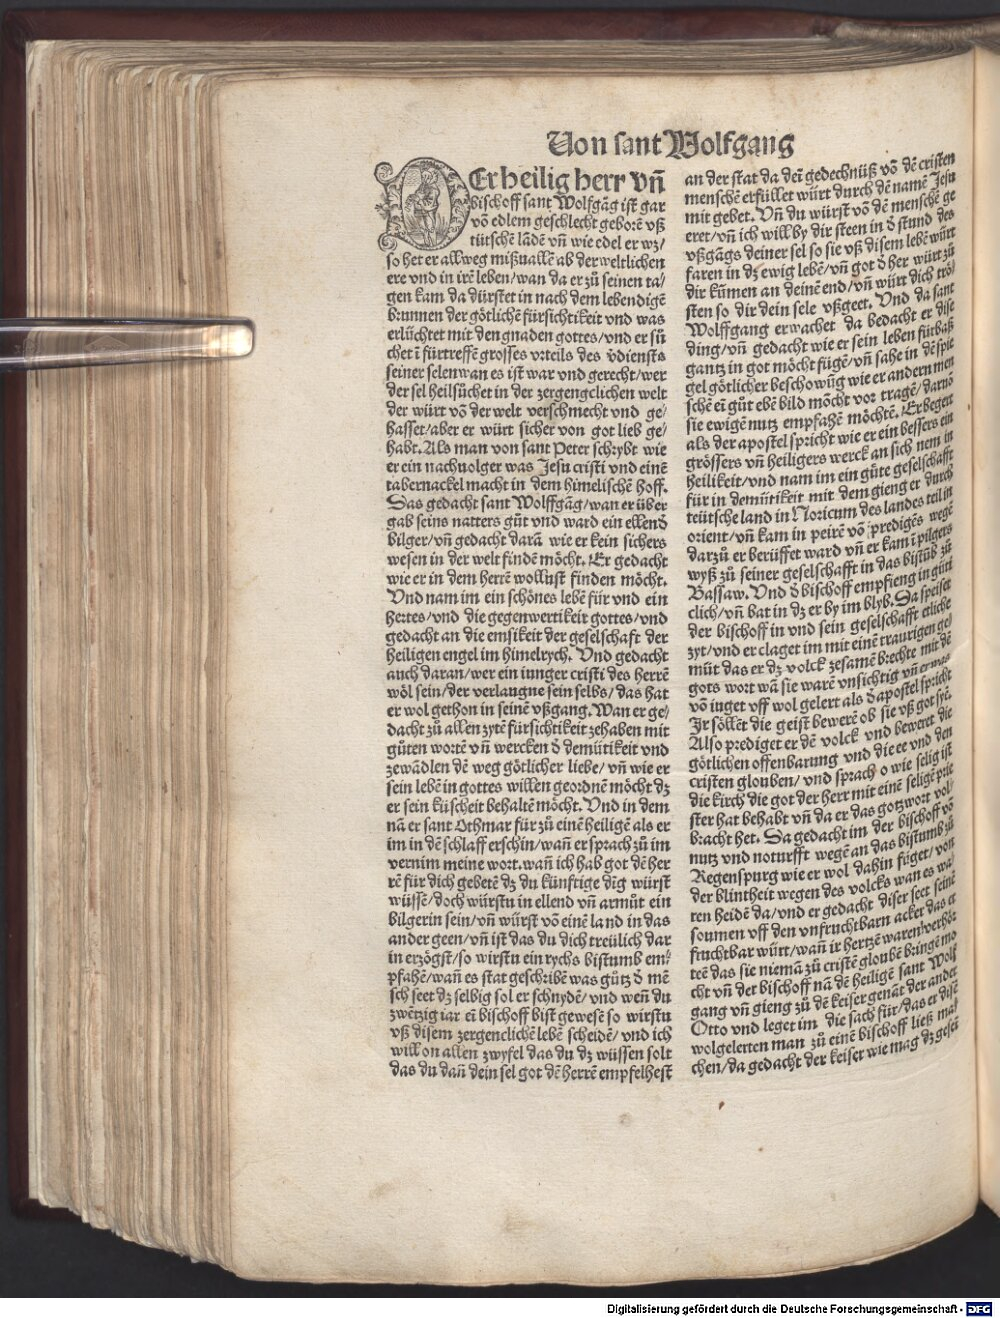 Von sant Wolfgang
DEr heilig herr vñ
bischoff sant Wolfgãg ist gar
võ edlem geschlecht geborẽ vß
tütschẽ lãdẽ vñ wie edel er wz/
so het er allweg mißuallẽ ab der weltlichen
ere vnd in irẽ leben/wan da er zů seinen ta⸗
gen kam da dürstet in nach dem lebendigẽ
brunnen der götlichẽ fürsichtikeit vnd was
erlüchtet mit den gnaden gottes/vnd er sů
chet ĩ fürtreffẽ grosses vrteils des v̄diensts
seiner selen wan es ist war vnd gerecht/wer
der sel heil sůchet in der zergengclichen welt
der würt võ der welt verschmecht vnd ge⸗
hasset/aber er würt sicher von got lieb ge⸗
habt. Als man von sant Peter schrybt wie
er ein nachuolger was Jesu cristi vnd einẽ
tabernackel macht in dem himelischẽ hoff.
Das gedacht sant Wolffgãg/wan er über
gab seins vatters gůt vnd ward ein ellend
bilger/vñ gedacht darã wie er kein sichers
wesen in der welt findẽ möcht. Er gedacht
wie er in dem herrẽ wollust finden möcht.
Vnd nam im ein schönes lebẽ für vnd ein
hertes/vnd die gegenwertikeit gottes/vnd
gedacht an die emsikeit der geselschaft der
heiligen engel im himelrych. Vnd gedacht
auch daran/wer ein iunger cristi des herrẽ
wöl sein/der verlaugne sein selbs/das hat
er wol gethon in seinẽ vßgang. Wan er ge⸗
dacht zů allen zytẽ fürsichtikeit zehaben mit
gůten wortẽ vñ wercken d̄ demütikeit vnd
zewãdlen dẽ weg götlicher liebe/vñ wie er
sein lebẽ in gottes willen geordnẽ möcht dz
er sein küscheit behaltẽ möcht. Vnd in dem
nã er sant Othmar für zů einẽ heiligẽ als er
im in dẽ schlaff erschin/wañ er sprach zů im
vernim meine wort. wañ ich hab got dẽ her
rẽ für dich gebetẽ dz du künftige dĩg würst
wüssẽ/doch würstu in ellend vñ armůt ein
bilgerin sein/vñ würst võ einẽ land in das
ander geen/vñ ist das du dich treülich dar
in erzögst/so wirstu ein rychs bistumb em⸗
pfahẽ/wañ es stat geschribẽ was gůtz d̄ mẽ
sch seet dz selbig sol er schnydẽ/vnd weñ du
zwẽtzig iar eĩ bischoff bist gewesẽ so wirstu
vß disem zergenclichẽ lebẽ scheidẽ/vnd ich
will on allen zwyfel das du dz wüssen solt
das du dañ dein sel got dẽ herrẽ empfelhest
an der stat da deĩ gedechnüß võ dẽ cristen
menschẽ erfüllet würt durch dẽ namẽ Jesu
mit gebet. Vñ du würst võ dẽ menschẽ ge
eret/vñ ich will by dir steen in d̄ stund des
vßgãgs deiner sel so sie vß disem lebẽ würt
faren in dz ewig lebẽ/vñ got d̄ her würt zů
dir kũmen an deinẽ end/vñ würt dich trö⸗
sten so dir dein sele vßgeet. Vnd da sant
Wolffgang erwachet da bedacht er dise
ding/vñ gedacht wie er sein leben fürbaß
gantz in got möcht fügẽ/vñ sahe in dẽ spie
gel götlicher beschowũg wie er andern men
schẽ eĩ gůt ebẽ bild möcht vor tragẽ/darnõ
sie ewigẽ nutz empfahẽ möchtẽ. Er begert
als der apostel spricht wie er ein bessers ein
grössers vñ heiligers werck an sich nem in
heilikeit/vnd nam im ein gůte geselschafft
für in demůtikeit mit dem gieng er durch
teütsche land in Noricum des landes teil in
orient/vñ kam in peirẽ võ predigẽs wegẽ
darzů er berüffet ward vñ er kam ĩ pilgers
wyß zů seiner geselschafft in das bistũb zů
Bassaw. Vnd d̄ bischoff empfieng in gütĩ
clich/vñ bat in dz er by im blyb. Da speiset
der bischoff in vnd sein geselschafft etliche
zyt/vnd er claget im mit einẽ traurigen ge⸗
můt das er dz volck zesamẽ brechte mit dẽ
gots wort wã sie warẽ vnsichtig vñ etwas
võ iuget vff wol gelert als d̄ apostel spricht
Jr söllẽt die geist bewerẽ ob sie vß got syẽ.
Also prediget er dẽ volck vnd beweret die
götlichen offenbarung vnd die ee vnd den
cristen glouben/vnd sprach o wie selig ist
die kirch die got der herr mit einẽ seligẽ prie
ster hat behabt vñ da er das gotzwort vol⸗
bracht het. Da gedacht im der bischoff võ
nutz vnd noturfft wegẽ an das bistumb zů
Regenspurg wie er wol dahin füget/von
der blintheit wegen des volcks wan es wa⸗
ren heidẽ da/vnd er gedacht diser seet seinẽ
soumen vff den vnfruchtbarn acker das er
fruchtbar würt/wañ ir hertzẽ waren verhör
tẽt das sie niemã zů cristẽ gloubẽ bringẽ mo
cht vñ der bischoff nã dẽ heiligẽ sant Wolf
gang vñ gieng zů dẽ keiser genãt der ander
Otto vnd leget im die sach für/das er disẽ
wolgelerten man zů einẽ bischoff ließ ma⸗
chen/da gedacht der keiser wie mag dz gesei
Digitalisierung gefördert durch die Deutsche Forschungsgemeinschaft - DFG